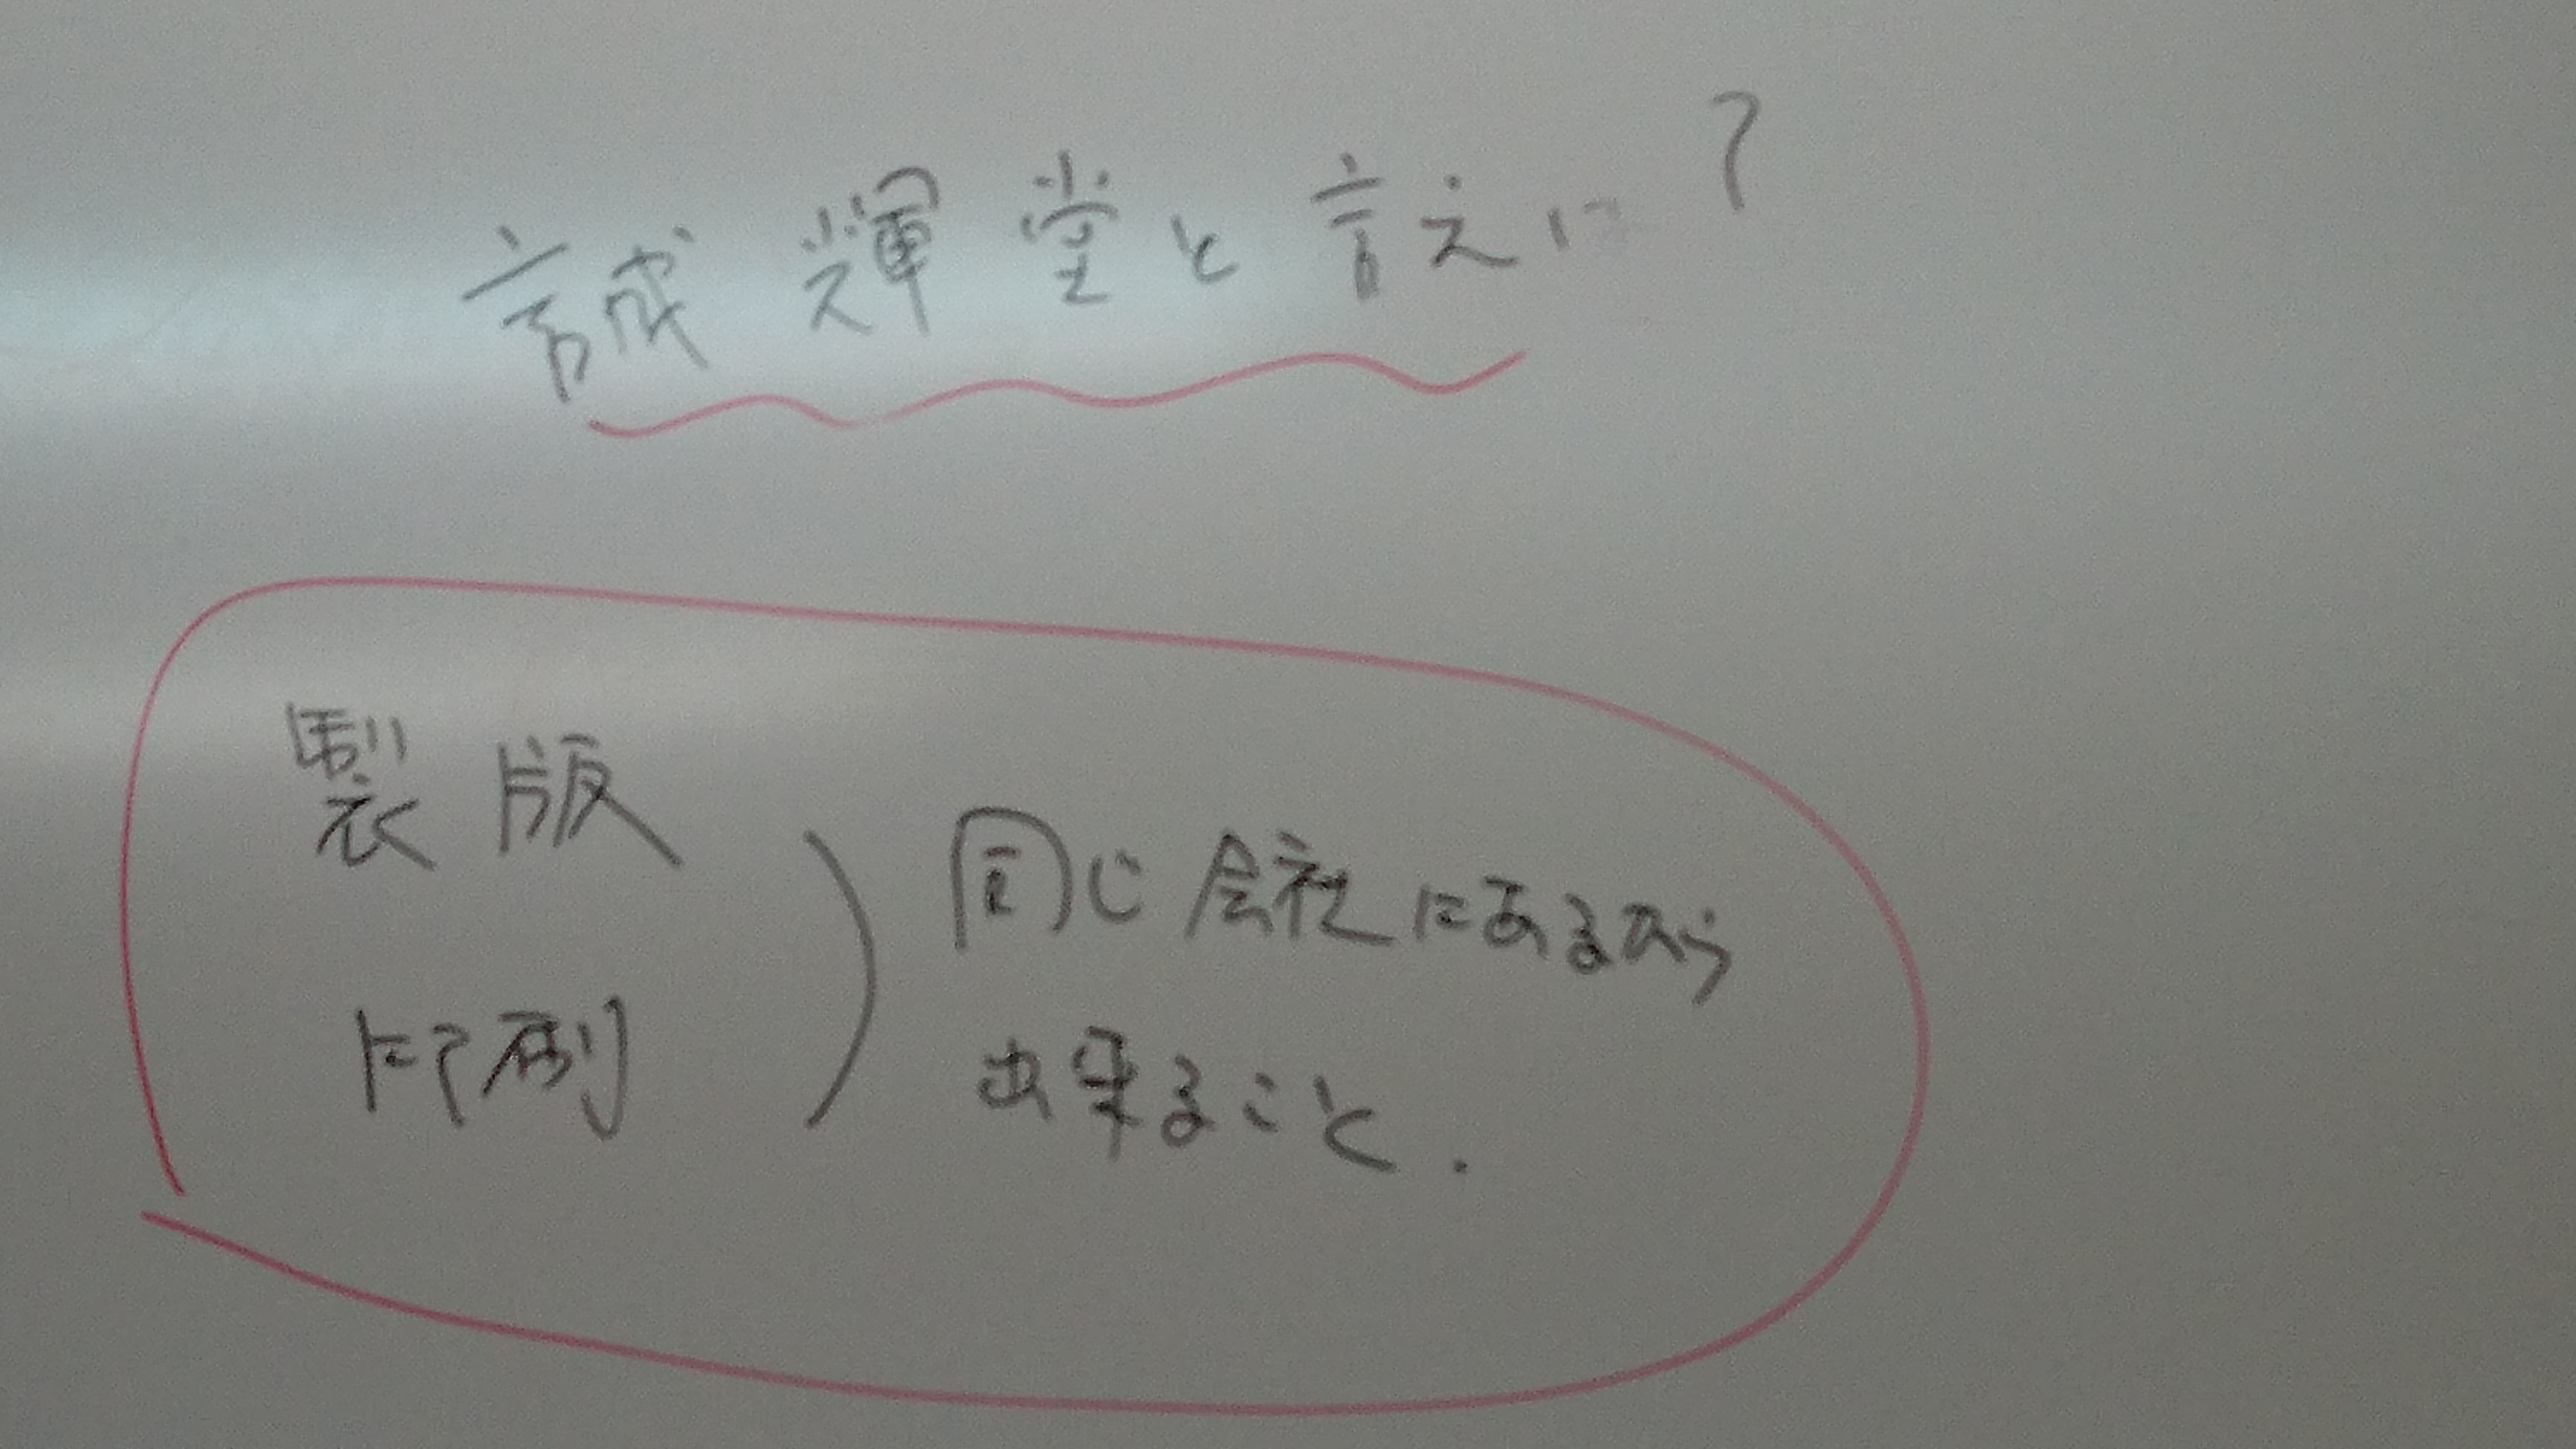 誠輝堂と言えば?
製版
印刷
同じ会社にあるから
出来ること.